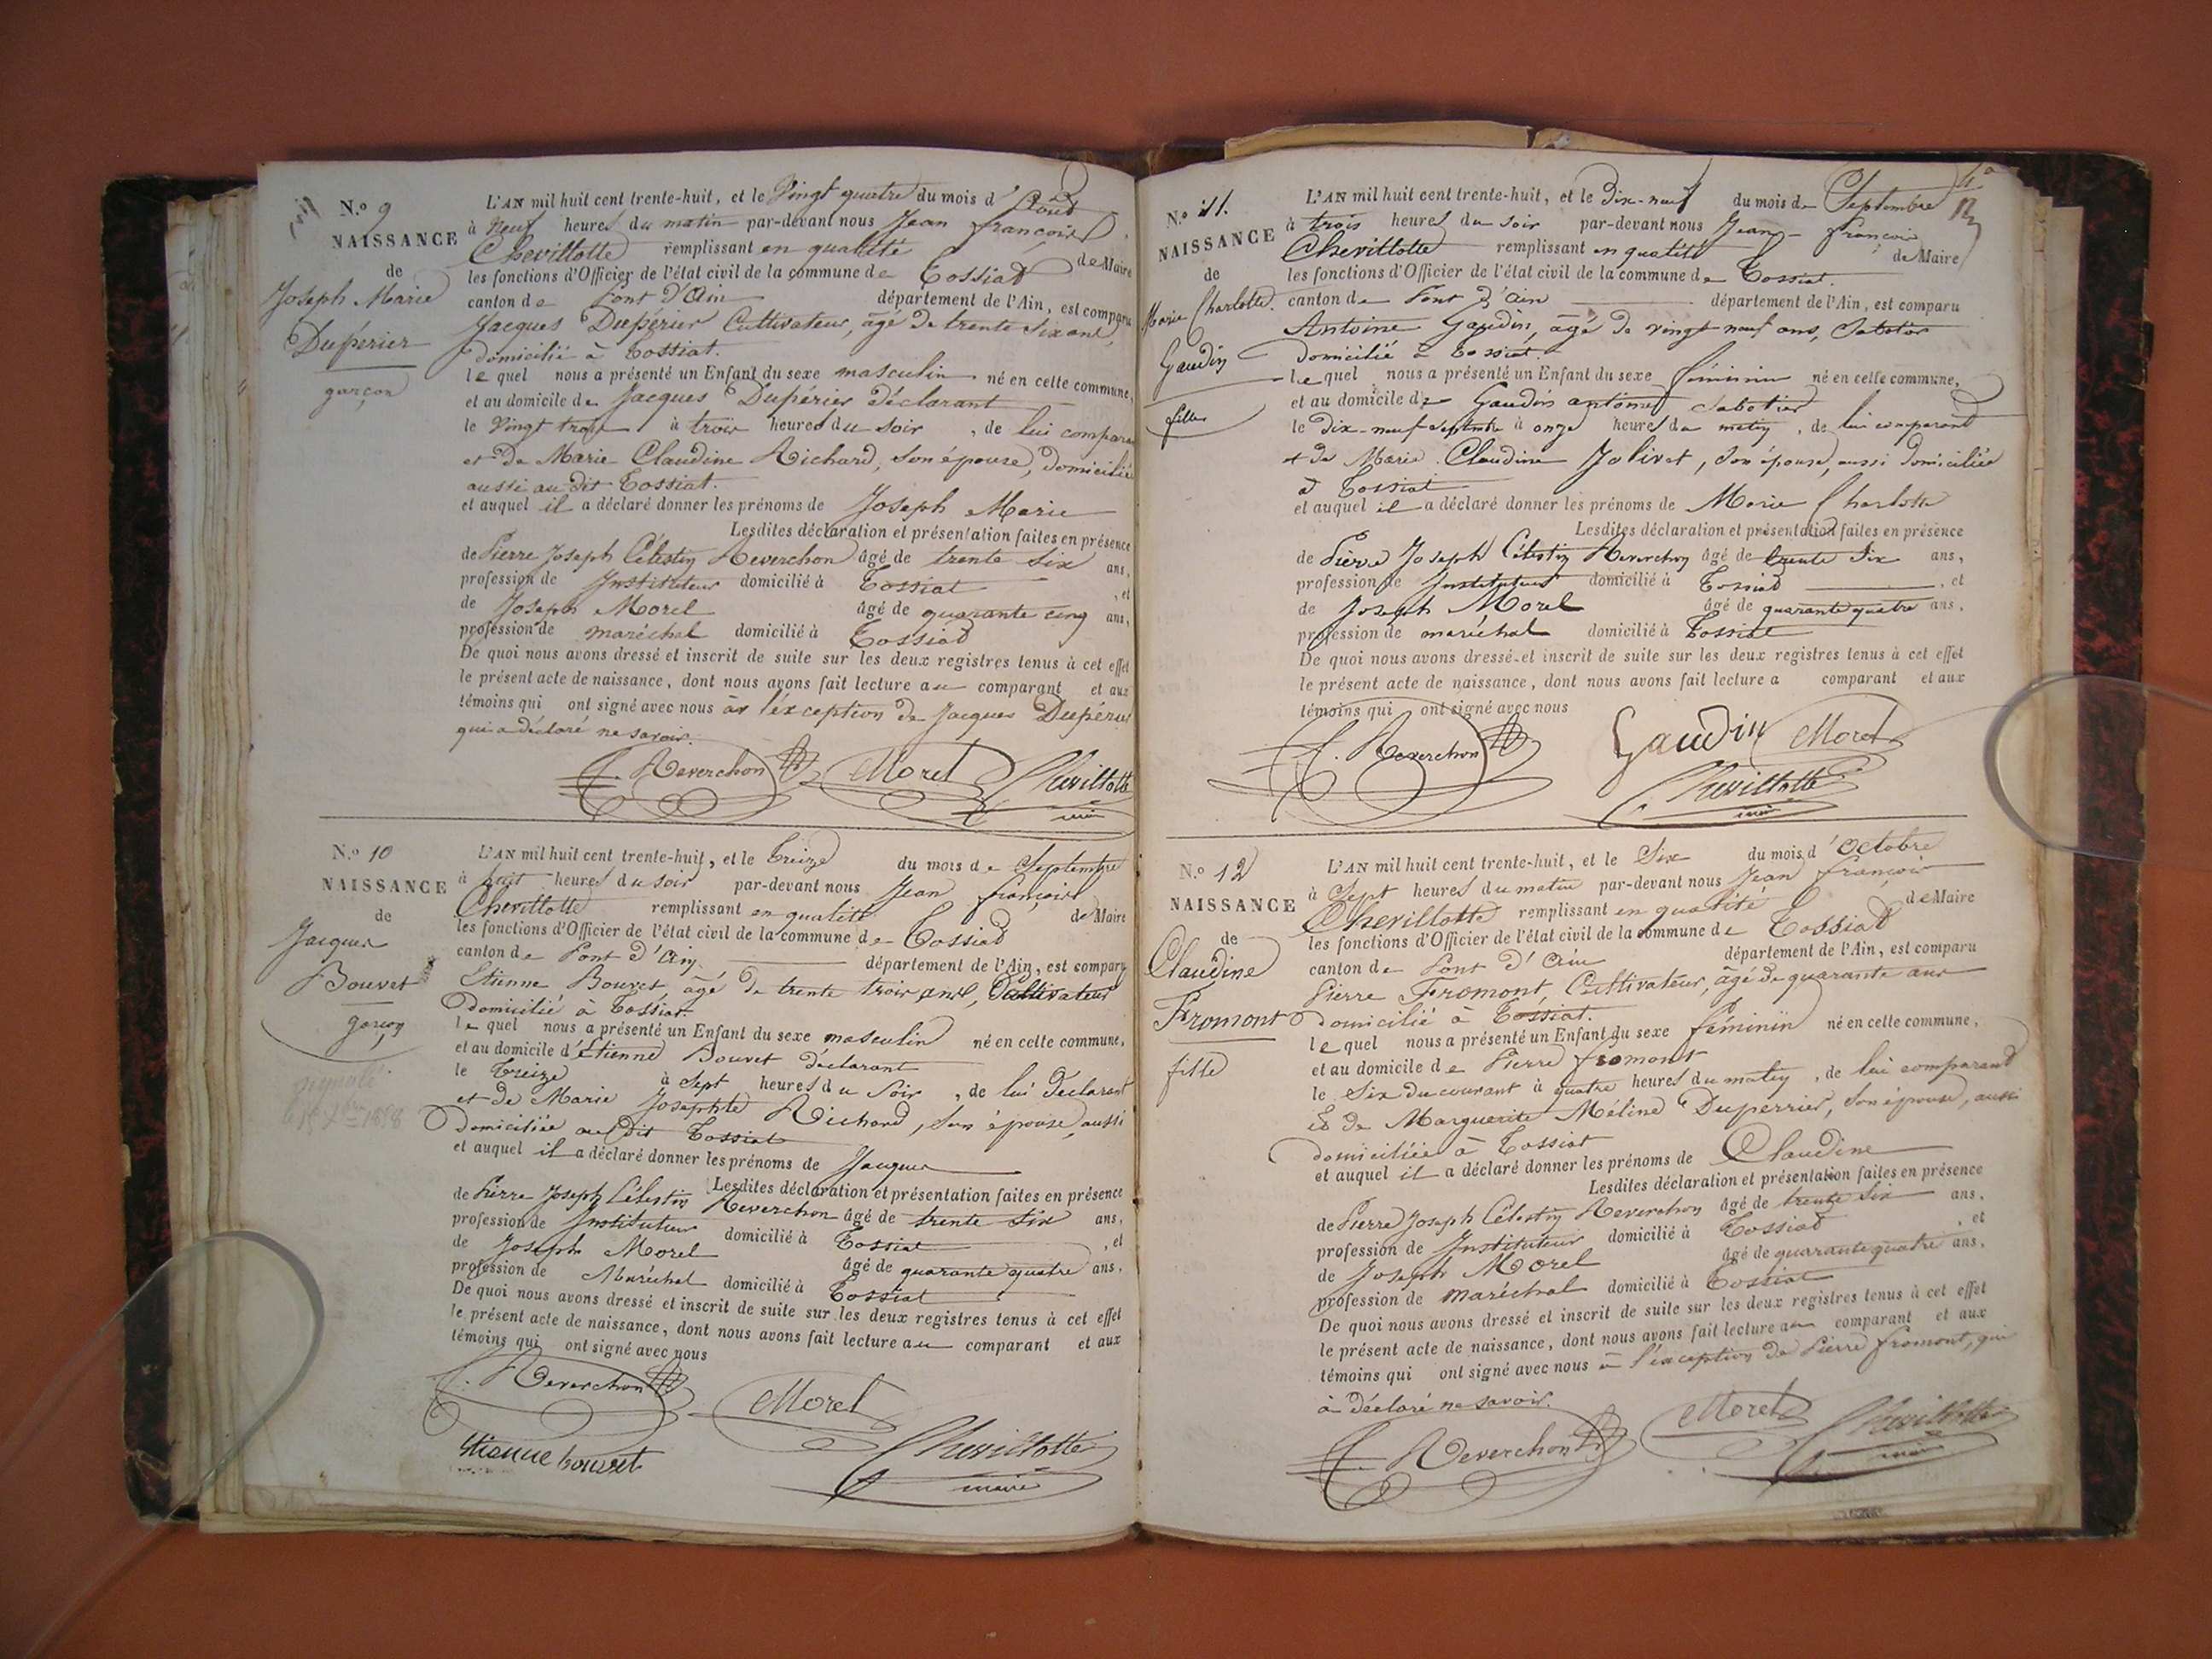 N.º 9
NAISSANCE
de
Joseph Marie
Dupérier
garçon
L'AN mil huit cent trente-huit, et le Vingt quatre du mois d'Août
à Neuf heures du matin par-devant nous Jean françois
Chevillotte remplissant en qualité de Maire
les fonctions d'Officier de l'état civil de la commune de Tossiat
canton de Pont d'Ain département de l'Ain, est comparu
Jacques Dupérier Cultivateur, âgé de trente six ans,
domicilié à Tossiat.
lequel nous a présenté un Enfant du sexe masculin né en cette commune,
et au domicile de Jacques Dupérier déclarant
le Vingt trois à trois heures du soir, de lui comparant
et de Marie Claudine Richard, son épouse, domiciliée
aussi au dit Tossiat.
et auquel il a déclaré donner les prénoms de Joseph Marie
Lesdites déclaration et présentation faites en présence
de Pierre Joseph Célestin Reverchon âgé de trente six ans,
profession de Instituteur domicilié à Tossiat, et
de Joseph Morel âgé de quarante cinq ans,
profession de maréchal domicilié à Tossiat
De quoi nous avons dressé et inscrit de suite sur les deux registres tenus à cet effet
le présent acte de naissance, dont nous avons fait lecture au comparant et aux
témoins qui ont signé avec nous à l'exception de Jacques Dupérier
qui a déclaré ne savoir.
Reverchon Morel Chevillotte
maire
N.º 10
NAISSANCE
de
Jacques
Bouvet
garçon
L'AN mil huit cent trente-huit, et le treize du mois de Septembre
à huit heures du soir par-devant nous Jean françois
Chevillotte remplissant en qualité de Maire
les fonctions d'Officier de l'état civil de la commune de Tossiat
canton de Pont d'Ain département de l'Ain, est comparu
Etienne Bouvet, âgé de trente trois ans, Cultivateur
domicilié à Tossiat
lequel nous a présenté un Enfant du sexe masculin né en cette commune,
et au domicile d'Etienne Bouvet déclarant
le treize à sept heures du soir, de lui déclarant
et de Marie Josephte Richard, son épouse, aussi
domiciliée au dit Tossiat
et auquel il a déclaré donner les prénoms de Jacques
Lesdites déclaration et présentation faites en présence
de Pierre Joseph Célestin Reverchon âgé de trente six ans,
profession de Instituteur domicilié à Tossiat, et
de Joseph Morel âgé de quarante quatre ans,
profession de Maréchal domicilié à Tossiat
De quoi nous avons dressé et inscrit de suite sur les deux registres tenus à cet effet
le présent acte de naissance, dont nous avons fait lecture au comparant et aux
témoins qui ont signé avec nous
Reverchon Morel
Etienne bouvet Chevillotte
maire
N.º 11.
NAISSANCE
de
Marie Charlotte
Gaudin
fille
L'AN mil huit cent trente-huit, et le Dix-neuf du mois de Septembre
à trois heures du soir par-devant nous Jean-françois
Chevillotte remplissant en qualité de Maire
les fonctions d'Officier de l'état civil de la commune de Tossiat.
canton de Pont d'ain département de l'Ain, est comparu
Antoine Gaudin, âgé de vingt neuf ans, Sabotier
domicilié à Tossiat.
lequel nous a présenté un Enfant du sexe féminin né en cette commune,
et au domicile de Gaudin antoine Sabotier
le Dix-neuf septembre à onze heures du matin, de lui comparant
et de Marie Claudine Jolivet, son épouse, aussi domiciliée
à Tossiat
et auquel il a déclaré donner les prénoms de Marie Charlotte
Lesdites déclaration et présentation faites en présence
de Pierre Joseph Célestin Reverchon âgé de trente six ans,
profession de Instituteur domicilié à Tossiat, et
de Joseph Morel âgé de quarante quatre ans,
profession de maréchal domicilié à Tossiat
De quoi nous avons dressé et inscrit de suite sur les deux registres tenus à cet effet
le présent acte de naissance, dont nous avons fait lecture a comparant et aux
témoins qui ont signé avec nous
Reverchon Gaudin Morel
Chevillotte
maire
N.º 12
NAISSANCE
de
Claudine
Fromont
fille
L'AN mil huit cent trente-huit, et le Six du mois d'Octobre
à Sept heures du matin par-devant nous Jean françois
Chevillotte remplissant en qualité de Maire
les fonctions d'Officier de l'état civil de la commune de Tossiat
canton de Pont d'Ain département de l'Ain, est comparu
Pierre Fromont, Cultivateur, âgé de quarante ans
domicilié à Tossiat.
lequel nous a présenté un Enfant du sexe féminin né en cette commune,
et au domicile de Pierre fromont
le Six du courant à quatre heures du matin, de lui comparant
Et de Marguerite Méline Duperrier, son épouse, aussi
domiciliée à Tossiat
et auquel il a déclaré donner les prénoms de Claudine
Lesdites déclaration et présentation faites en présence
de Pierre Joseph Célestin Reverchon âgé de trente six ans,
profession de Instituteur domicilié à Tossiat, et
de Joseph Morel âgé de quarante quatre ans,
profession de maréchal domicilié à Tossiat
De quoi nous avons dressé et inscrit de suite sur les deux registres tenus à cet effet
le présent acte de naissance, dont nous avons fait lecture au comparant et aux
témoins qui ont signé avec nous à l'exception de Pierre fromont, qui
à déclaré ne savoir.
Reverchon Morel Chevillotte
maire